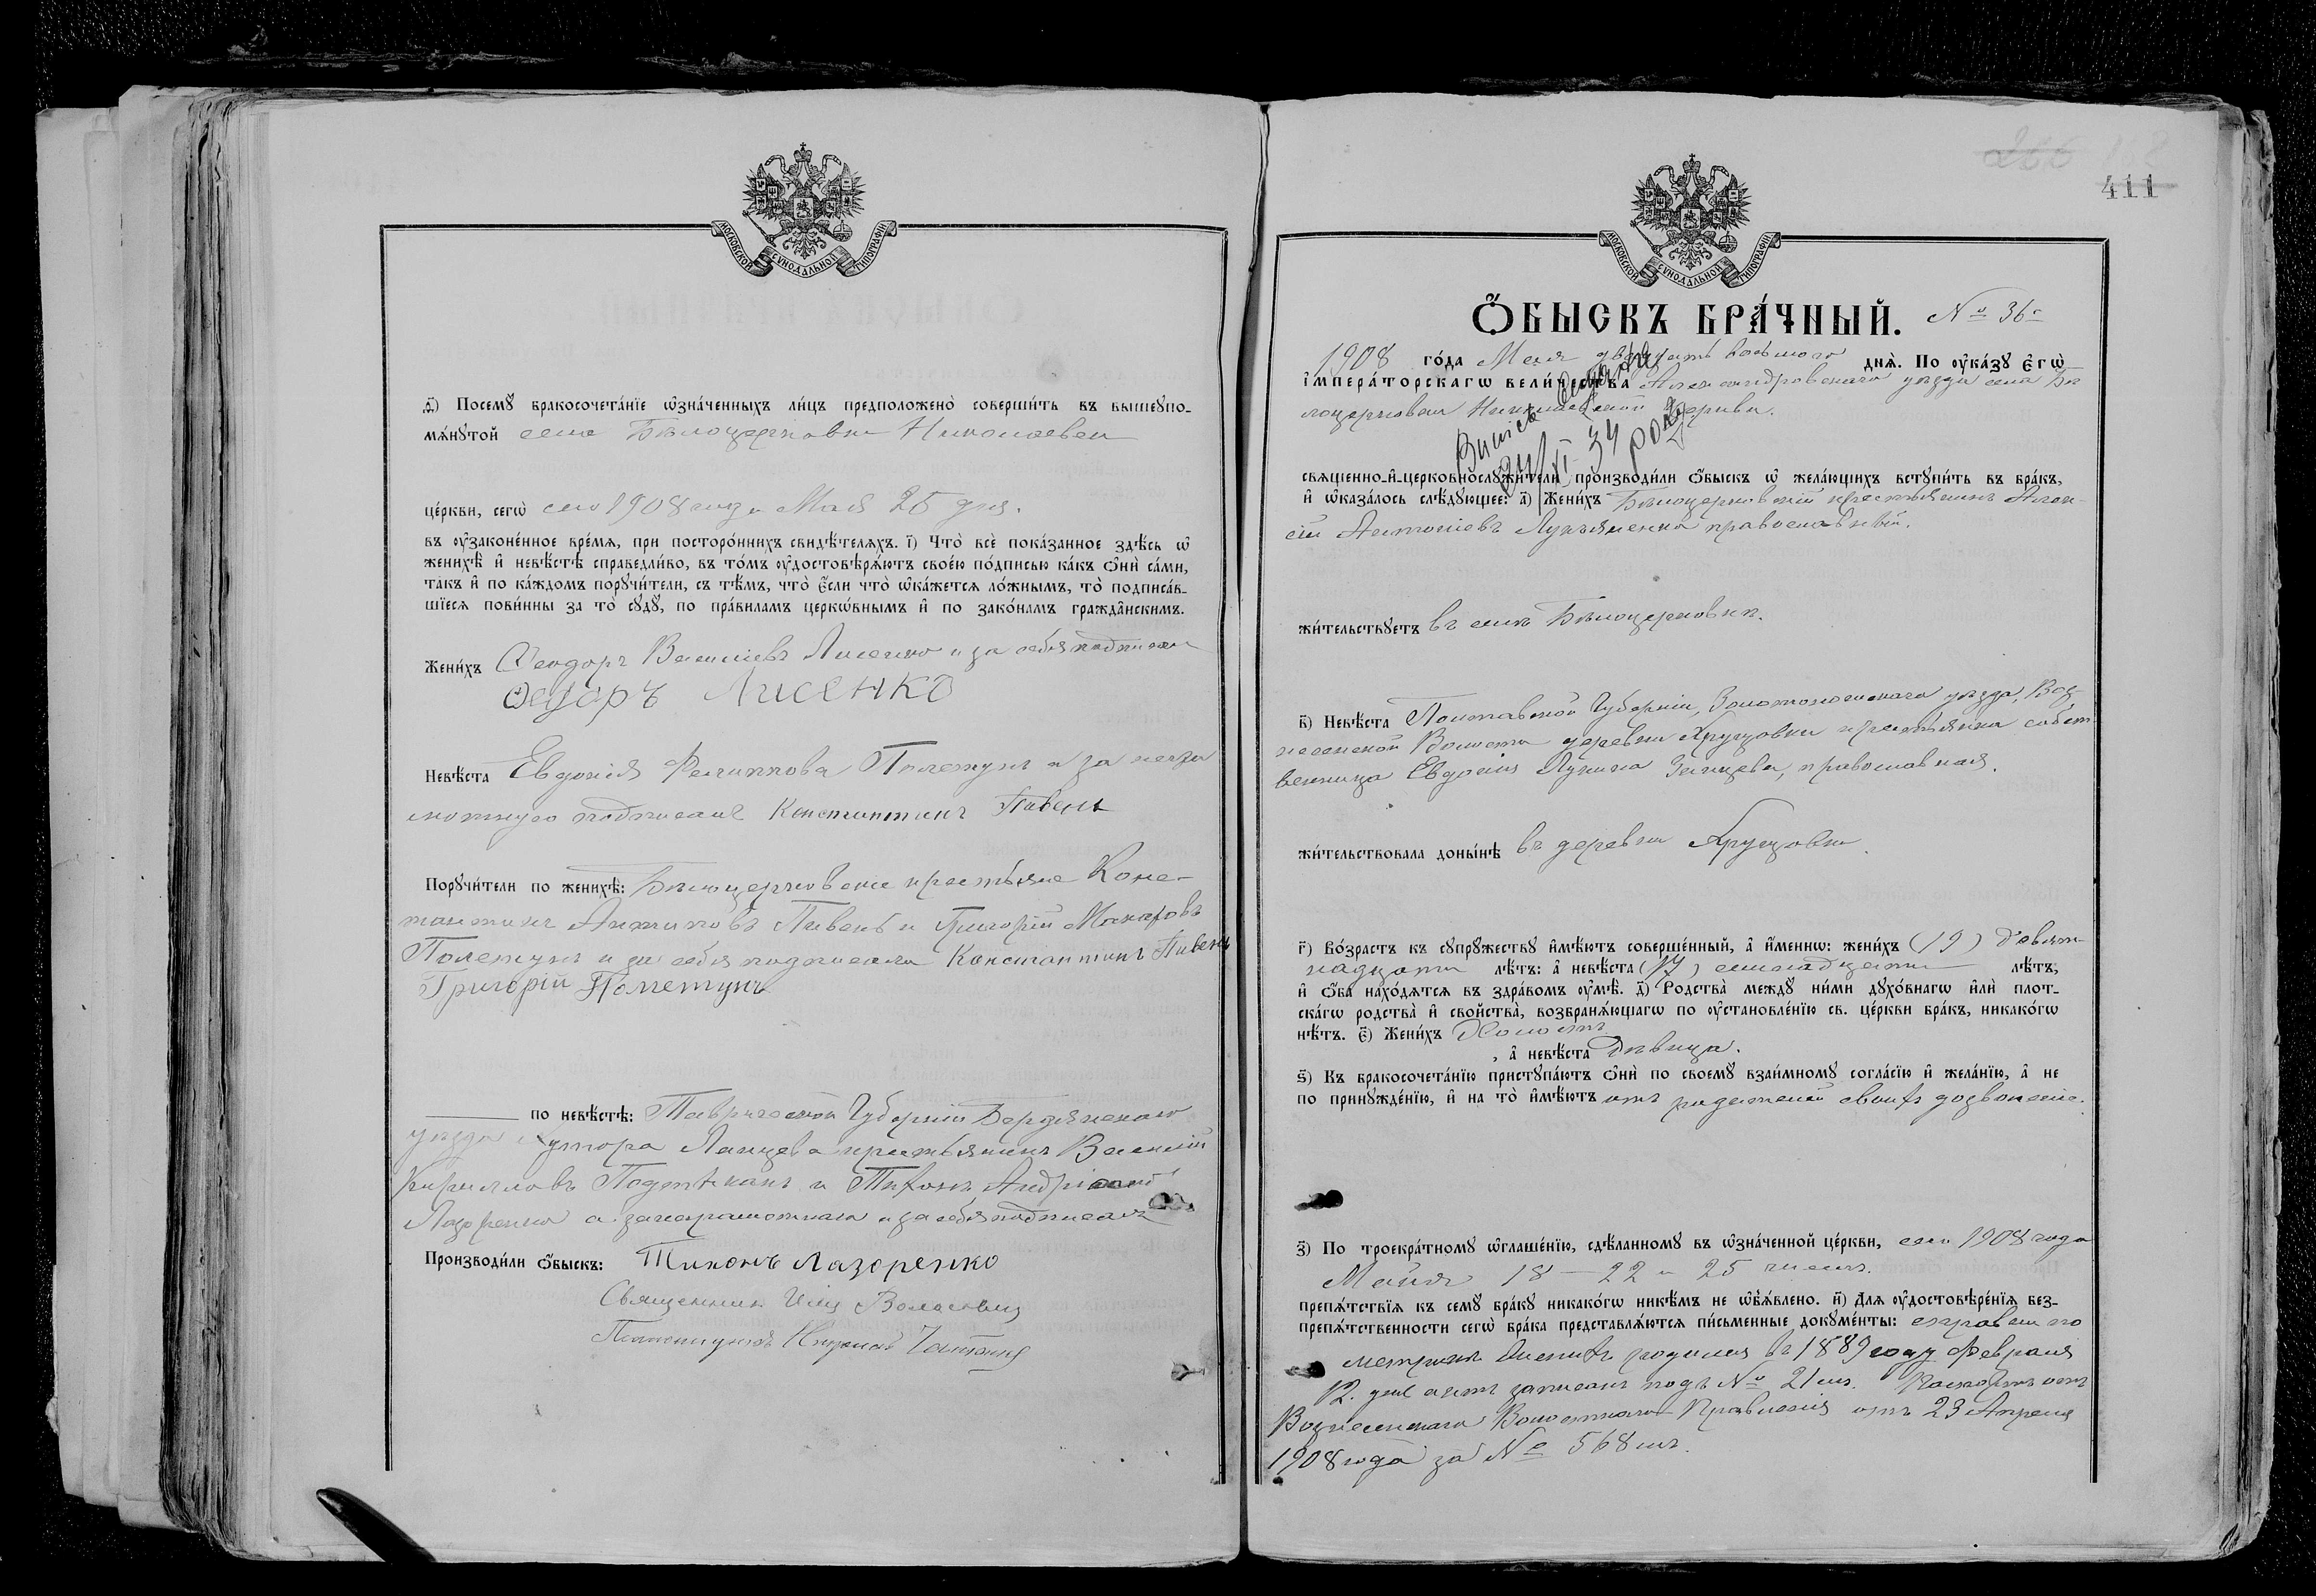 МОСКОВСКОЙ СУНОДАЛЬНОЙ ТИПОГРАФІИ
д҃) Посемꙋ бракосочета́нїе ѡ҆зна́ченныхъ ли́цъ предположено̀ соверши́ть въ вышеꙋпо-
мѧ́нꙋтой села Бѣлоцерковки Николаевск
це́ркви, сегѡ̀ сего 1908 года Мая 25 дня.
въ ᲂу҆законе́нное вре́мѧ, при посторо́ннихъ свидѣ́телѧхъ. і҃) Что̀ всѐ пока́занное здѣ́сь ѡ҆
женихѣ̀ и҆ невѣ́стѣ справедли́во, въ то́мъ ᲂу҆достовѣрѧ́ютъ свое́ю по́дписью ка́къ ѻ҆нѝ са́ми,
та́къ и҆ по ка́ждомъ порꙋчи́тели, съ тѣ́мъ, что̀ є҆́сли что̀ ѡ҆ка́жетсѧ ло́жнымъ, то̀ подписа́в-
шїесѧ пови́нны за то̀ сꙋдꙋ̀, по пра́виламъ церкѡ́внымъ и҆ по зако́намъ гражда̑нскимъ.
Жени́хъ Ѳеодоръ Васильевъ Лисенко и за себя подписал
Ѳедоръ Лисенко
Невѣ́ста Евдокія Филиппова Полетунъ а за негра
мотную подписалъ Константинъ Пивень
Порꙋчи́тели по женихѣ̀: Бѣлоцерковскіе крестьяне Конс-
тантинъ Антиповъ Пивень и Григорій Макаровъ
Полетунъ и за себя подписали Константинъ Пивень
Григорій Полетунъ
по невѣ́стѣ: Таврической Губерніи Бердянскаго
уѣзда хутора Ланцева крестьянинъ Василій
Кирилловъ и Тихонъ
Лазоренко а за неграмотнаго и за себя подписалъ
Производи́ли ѻ҆́быскъ: Тихонъ Лазоренко
Священникъ Илія
Псаломщикъ
411
МОСКОВСКОЙ СУНОДАЛЬНОЙ ТИПОГРАФІИ
Ѻ҆́БЫСКЪ БРА́ЧНЫЙ. № 36й
1908 го́да Мая двадцать восьмого днѧ̀. По ᲂу҆ка́зꙋ Є҆гѡ̀
і҆мпера́торскагѡ вели́чества Александровскаго уѣзда села Бѣ
лоцерковки Николаевской церкви.
24/XI 34 року
свѧще́нно-и҆-церковнослꙋжи́тели производи́ли ѻ҆́быскъ ѡ҆ жела́ющихъ встꙋпи́ть въ бра́къ,
и҆ ѡ҆каза́лось слѣ́дꙋющее: а҃) Жени́хъ Бѣлоцерковскій крестьянинъ Алек-
сѣй Антоніевъ Лукьяненко православный.
жи́тельствꙋетъ въ селѣ Бѣлоцерковкѣ.
в҃) Невѣ́ста Полтавской Губерніи, Золотоношскаго уѣзда, Воз-
несенской Волости деревни Хрущовки крестьянка собст
венница Евдокія Лукина православная.
жи́тельствовала доны́нѣ въ деревни Хрущовки
г҃) Во́зрастъ къ сꙋпрꙋ́жествꙋ и҆мѣ́ютъ соверше́нный, а҆ и҆́меннѡ: жени́хъ (19) девят-
надцати лѣ́тъ: а҆ невѣ́ста (17) семнадцати лѣ́тъ;
и҆ ѻ҆́ба нахо́дѧтсѧ въ здра́вомъ ᲂу҆мѣ̀. д҃) Родства̀ междꙋ̀ ни́ми дꙋхо́внагѡ и҆лѝ плот-
ска́гѡ родства̀ и҆ свойства̀, возбранѧ́ющагѡ по ᲂу҆становле́нїю св. це́ркви бра́къ, никако́гѡ
нѣ́тъ. є҃) Жени́хъ Холостъ
, а҆ невѣ́ста Дѣвица.
ѕ҃) Къ бракосочета́нїю пристꙋпа́ютъ ѻ҆нѝ по своемꙋ̀ взаи́мномꙋ согла́сїю и҆ жела́нїю, а҆ не
по принꙋжде́нїю, и҆ на то̀ и҆мѣ́ютъ отъ родителей своихъ дозволеніе.
з҃) По троекра́тномꙋ ѡ҆глаше́нїю, сдѣ́ланномꙋ въ ѡ҆зна́ченной це́ркви, сего 1908 года
Майя 18 — 22 и 25 числъ.
препѧ́тствїѧ къ семꙋ̀ бра́кꙋ никако́гѡ никѣ́мъ не ѡ҆б̾ѧ́влено. и҃) Длѧ ᲂу҆достовѣре́нїѧ без-
препѧ́тственности сегѡ̀ бра́ка представлѧ́ютсѧ пи́сьменные докꙋме́нты: справки по
метрикѣ женихъ родился въ 1889 году Февраля
12. дня актъ записанъ подъ № 21мъ. Паспортъ отъ
Вознесенскаго Волостнаго Правленія отъ 23 Апреля
1908 года за № 568мъ.